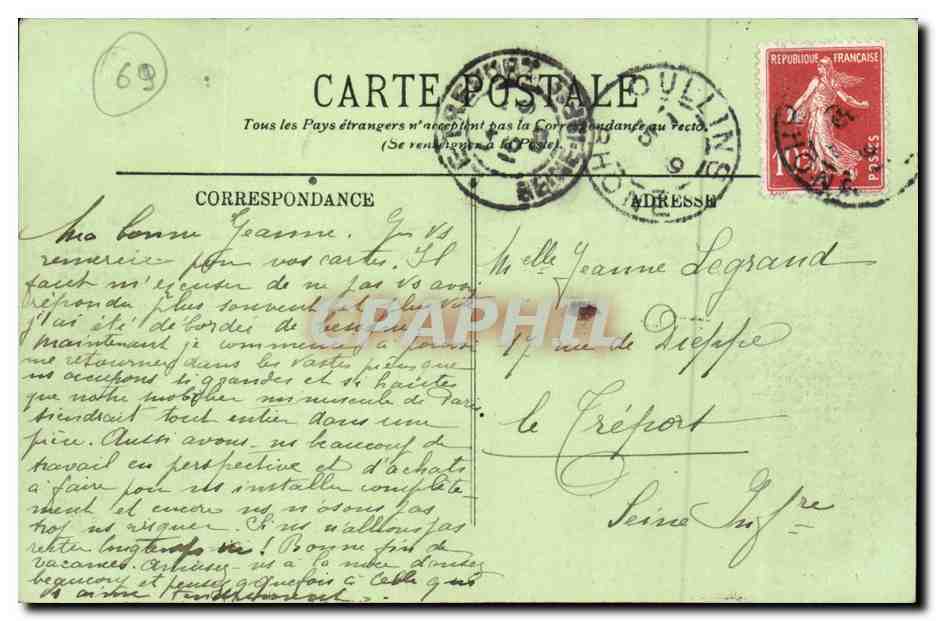 69
CARTE POSTALE
Tous les Pays étrangers n'acceptent pas la Correspondance au recto.
(Se renseigner à la Poste).
CORRESPONDANCE
ADRESSE
OULLINS
RHONE
LE TREPORT
SEINE-INF
REPUBLIQUE FRANÇAISE
10
POSTES
Ma bonne Jeanne. Je vs
remercie pour vos cartes. Il
faut m'excuser de ne pas vs avoir
répondu plus souvent et plus vite
j'ai été débordée de besogne
maintenant je commence à pouvoir
me retourner dans les vastes pièces que
ns occupons si grandes et si hautes
que notre mobilier minuscule de Paris
tiendrait tout entier dans une
pièce. Aussi avons-ns beaucoup de
travail en perspective et d'achats
à faire pour ns installer complète-
ment et encore ns n'osons pas
trop ns risquer. Si ns n'allions pas
rester longtemps ici! Bonne fin de
vacances. Amusez-vs à la noce dansez
beaucoup et pensez qquefois à celle qui
vs aime tendrement.
Melle Jeanne Legrand
17 rue de Dieppe
le Tréport
Seine Infre
CPAPHIL